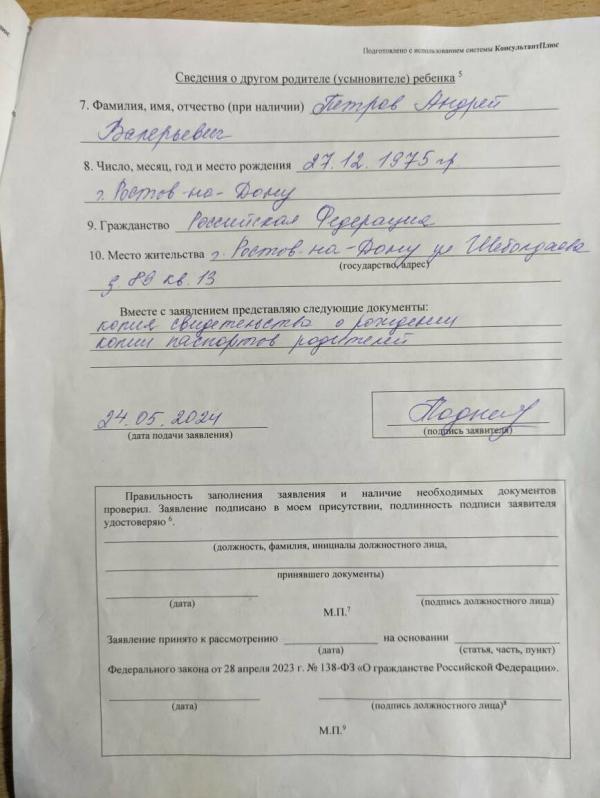 Подготовлено с использованием системы КонсультантПлюс
Сведения о другом родителе (усыновителе) ребенка 5
7. Фамилия, имя, отчество (при наличии) Петров Андрей
Валерьевич
8. Число, месяц, год и место рождения 27.12.1975 г
г. Ростов-на-Дону
9. Гражданство Российская Федерация
10. Место жительства г. Ростов-на-Дону ул Шеболдаева
(государство, адрес)
д 89 кв. 13
Вместе с заявлением представляю следующие документы:
копия свидетельства о рождении
копии паспортов родителей
24.05.2024
(дата подачи заявления)
(подпись заявителя)
Правильность заполнения заявления и наличие необходимых документов
проверил. Заявление подписано в моем присутствии, подлинность подписи заявителя
удостоверяю 6.
(должность, фамилия, инициалы должностного лица,
принявшего документы)
(дата) (подпись должностного лица)
М.П.7
Заявление принято к рассмотрению на основании
(дата) (статья, часть, пункт)
Федерального закона от 28 апреля 2023 г. № 138-ФЗ «О гражданстве Российской Федерации».
(дата) (подпись должностного лица)8
М.П.9